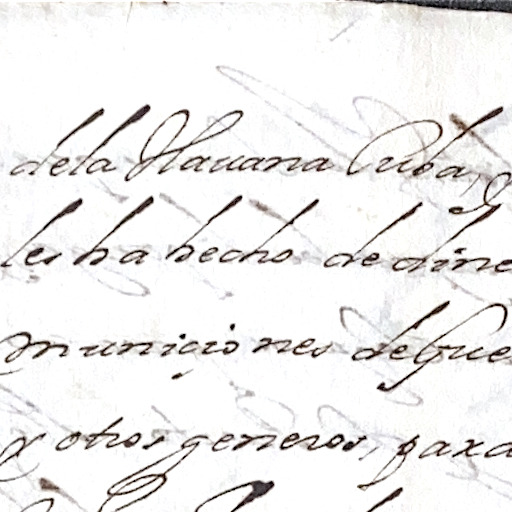 dela Hauana Cuba, y
les ha hecho de dine
municiones de Gue
y otros generos, para